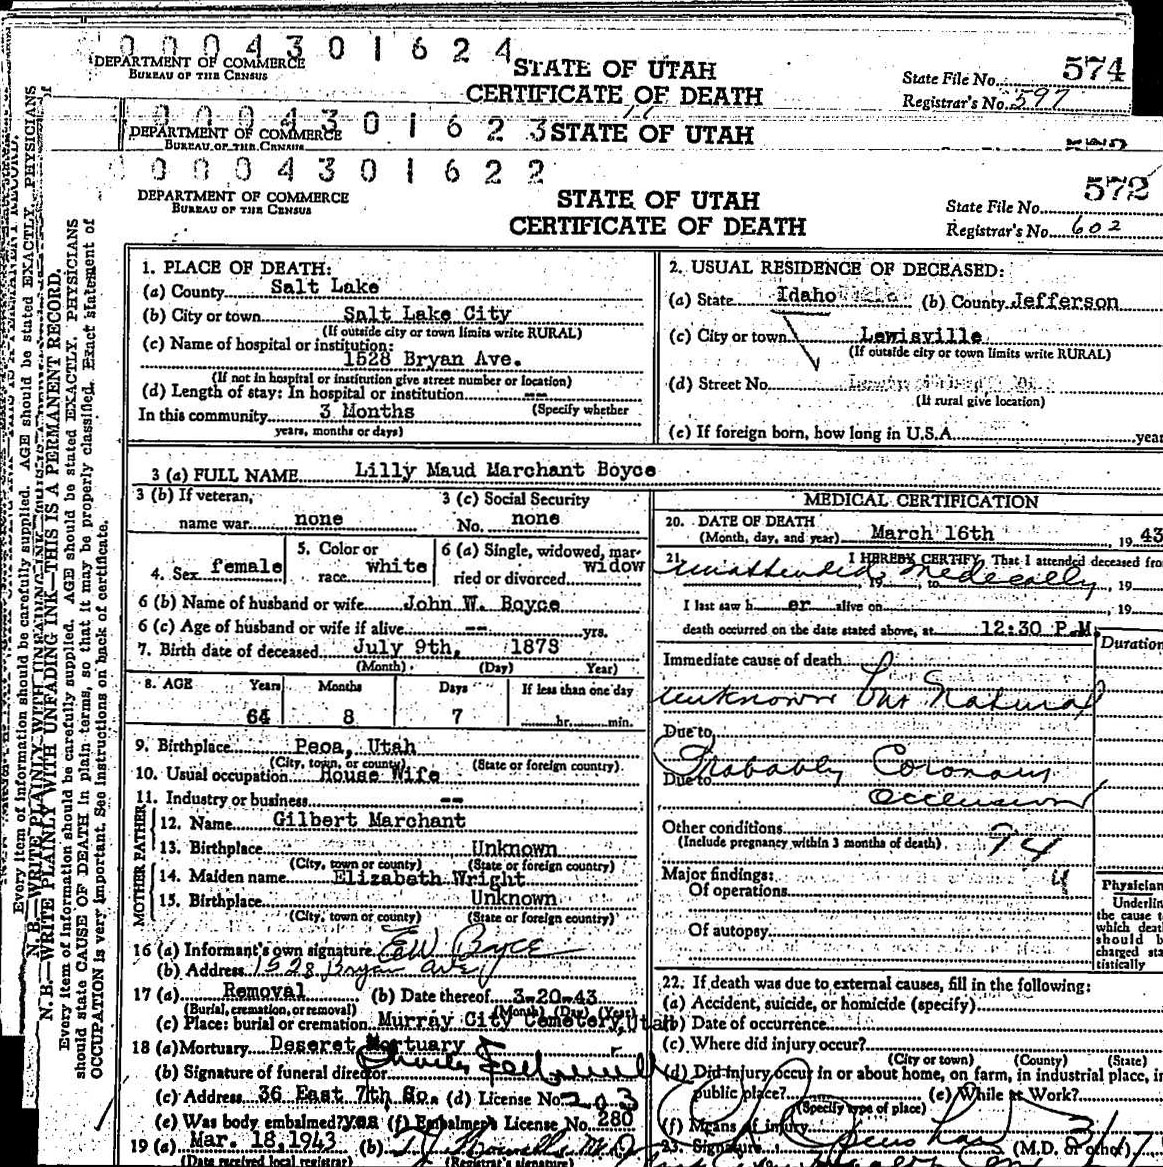 0004301624
DEPARTMENT OF COMMERCE
BUREAU OF THE CENSUS
STATE OF UTAH
CERTIFICATE OF DEATH
State File No. 574
Registrar's No. 597
0004301623
DEPARTMENT OF COMMERCE
BUREAU OF THE CENSUS
STATE OF UTAH
0004301622
DEPARTMENT OF COMMERCE
BUREAU OF THE CENSUS
STATE OF UTAH
CERTIFICATE OF DEATH
State File No. 572
Registrar's No. 602
N. B.—WRITE PLAINLY WITH UNFADING INK—THIS IS A PERMANENT RECORD.
Every item of information should be carefully supplied. AGE should be stated EXACTLY. PHYSICIANS
should state CAUSE OF DEATH in plain terms, so that it may be properly classified. Exact statement of
OCCUPATION is very important. See instructions on back of certificate.
1. PLACE OF DEATH:
(a) County Salt Lake
(b) City or town Salt Lake City
(If outside city or town limits write RURAL)
(c) Name of hospital or institution:
1528 Bryan Ave.
(If not in hospital or institution give street number or location)
(d) Length of stay: In hospital or institution --
In this community 3 Months (Specify whether
years, months or days)
2. USUAL RESIDENCE OF DECEASED:
(a) State Idaho (b) County Jefferson
(c) City or town Lewisville
(If outside city or town limits write RURAL)
(d) Street No.
(If rural give location)
(e) If foreign born, how long in U.S.A. year
3 (a) FULL NAME Lilly Maud Marchant Boyce
3 (b) If veteran, 3 (c) Social Security
name war none No. none
4. Sex female 5. Color or race white 6 (a) Single, widowed, married or divorced widow
6 (b) Name of husband or wife John W. Boyce
6 (c) Age of husband or wife if alive -- yrs.
7. Birth date of deceased July 9th, 1878
(Month) (Day) Year)
8. AGE Years Months Days If less than one day
64 8 7 hr. min.
9. Birthplace Peoa, Utah
(City, town, or county) (State or foreign country)
10. Usual occupation House Wife
11. Industry or business --
FATHER
12. Name Gilbert Marchant
13. Birthplace Unknown
(City, town or county) (State or foreign country)
MOTHER
14. Maiden name Elizabeth Wright
15. Birthplace Unknown
(City, town or county) (State or foreign country)
16 (a) Informant's own signature E W Boyce
(b) Address 1528 Bryan Ave
17 (a) Removal (b) Date thereof 3-20-43
(Burial, cremation, or removal) (Month) (Day) (Year)
(c) Place: burial or cremation Murray City Cemetery, Utah
18 (a) Mortuary Deseret Mortuary
(b) Signature of funeral director
(c) Address 36 East 7th So. (d) License No. 203
(e) Was body embalmed? yes (f) Embalmer's License No. 280
19 (a) Mar. 18, 1943 (b)
(Date received local registrar) (Registrar's signature)
MEDICAL CERTIFICATION
20. DATE OF DEATH
(Month, day, and year) March 16th 19 43
21. I HEREBY CERTIFY, That I attended deceased fro
unattended medically, 19
I last saw h er alive on , 19
death occurred on the date stated above, at 12:30 P.M.
Duration
Immediate cause of death
unknown but Natural
Due to
Probably Coronary
Due to
occlusion
Other conditions
(Include pregnancy within 3 months of death) 94
Major findings:
Of operations
Of autopsy
Physician
Underlin
the cause t
which deat
should b
charged sta
tistically
22. If death was due to external causes, fill in the following:
(a) Accident, suicide, or homicide (specify)
(b) Date of occurrence
(c) Where did injury occur?
(City or town) (County) (State)
(d) Did injury occur in or about home, on farm, in industrial place, i
public place? (e) While at Work?
(Specify type of place)
(f) Means of injury
23. Signature (M.D. or other)